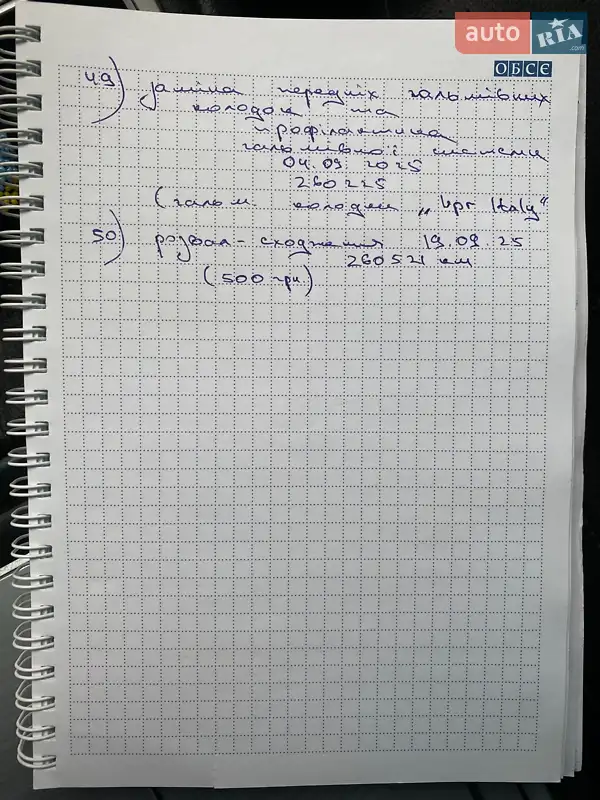 auto RIA.com
ОБСЄ
49) заміна передніх гальмівних
колодок та
профілактика
гальмівної системи
04.09.2025
260225
(гальм. колодки „kpr Italy"
50) розвал-сходження 19.09.25
260521 км
(500 грн.)